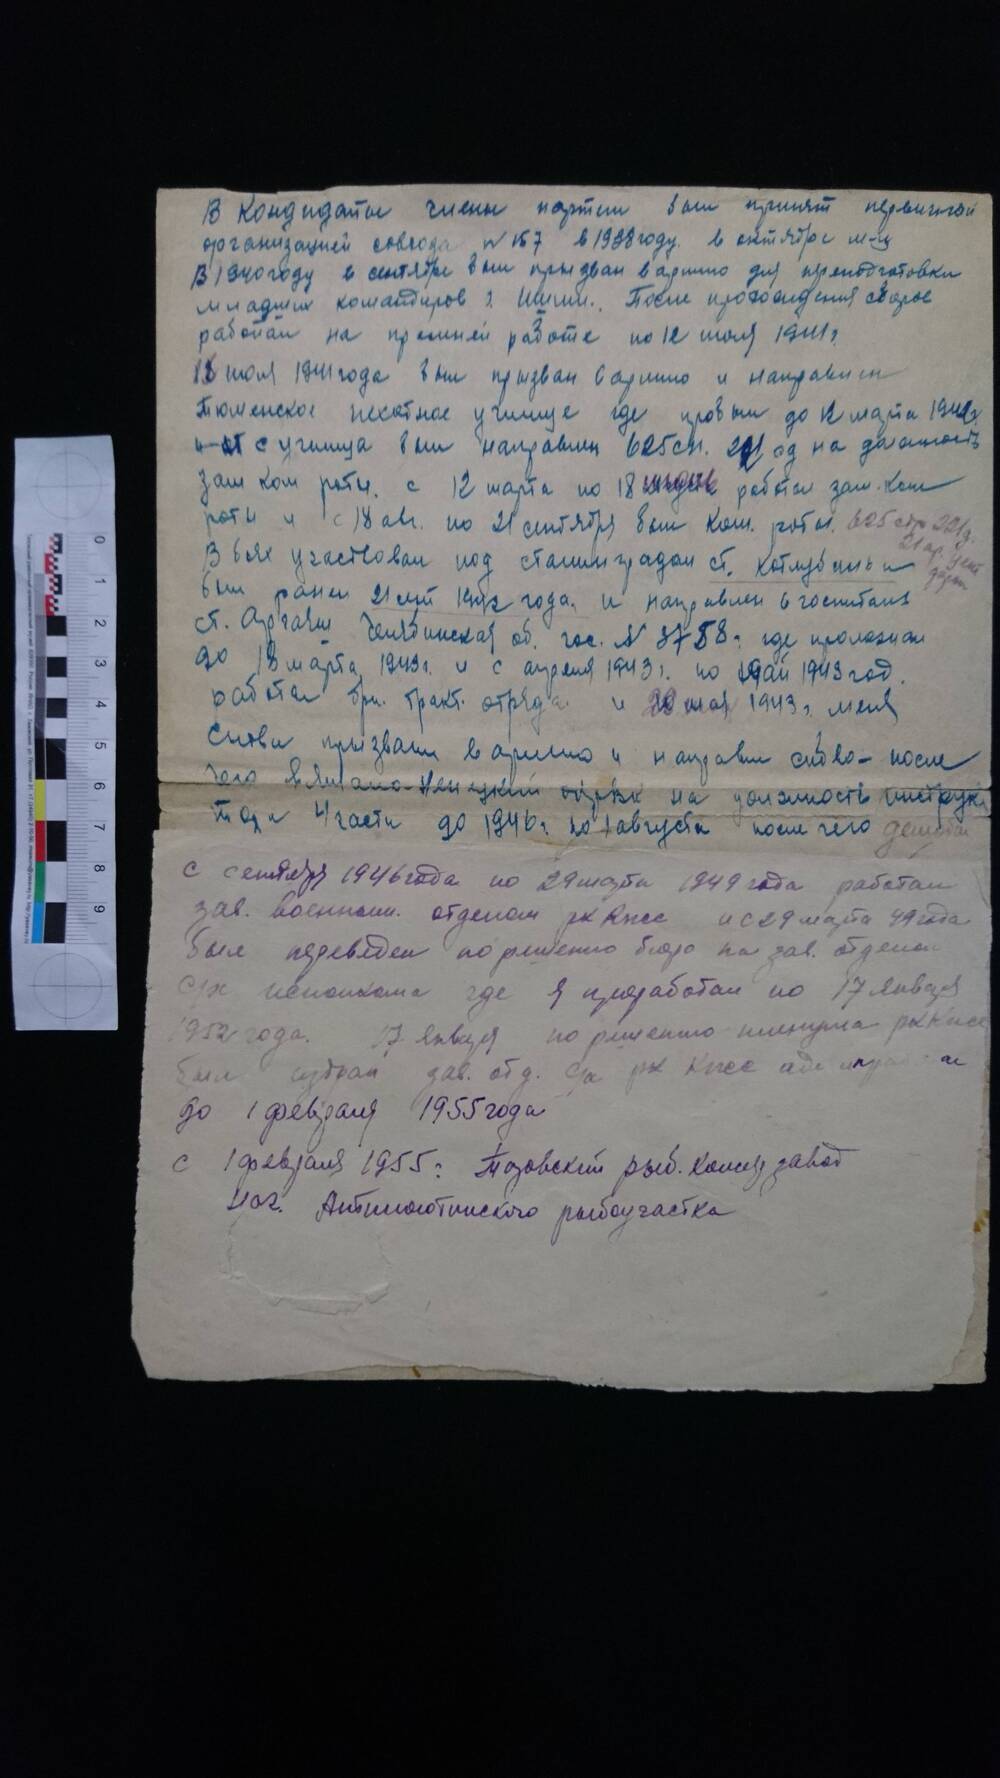 В Кандидаты члены партии был принят первичной
организацией совхоза №157 в 1938 году. в октябре м-це
В 1940 году в сентябре был призван в армию для переподготовки
младших командиров г. Ишим. После прохождения сборов
работал на прежней работе по 12 июля 1941 г.
июля 1941 года был призван в армию и направлен
Тюменское пехотное училище где пробыл до 12 марта 1942 г.
с училища был направлен 625 сп. 221 сд на должность
зам ком роты. с 12 марта по 18 работал зам. ком
роты и с 18 авг. по 21 сентября был ком. роты. 625 стр 221 д.
В боях участвовал под сталинградом ст. Котлубань и
был ранен 21 1942 года. и направлен в госпиталь
ст. Аргаяш Челябинская об. гос. № 3788. где пролежал
до 18 марта 1943 г. и с апреля 1943 г. по май 1943 год.
работал бри. тракт. отряда и мая 1943 г. меня
снова призвали в армию и направили после
чего в Ямало-Ненецкий окрвк на должность инструк
тора 4 части до 1946 г. по 1 августа после чего
с сентября 1946 года по 29 марта 1949 года работал
зав. военным. отделом рк Кпсс и с 29 марта 49 года
был переведен по решению бюро на зав. отделом
С/х исполкома где я проработал по 17 января
1952 года. 17 января по решению пленума рк Кпсс
был избран зав. отд. С/х рк Кпсс
до 1 февраля 1955 года
с 1 февраля 1955 г. Тазовский рыб. консерв завод
нач. Антипаютинского рыбоучастка